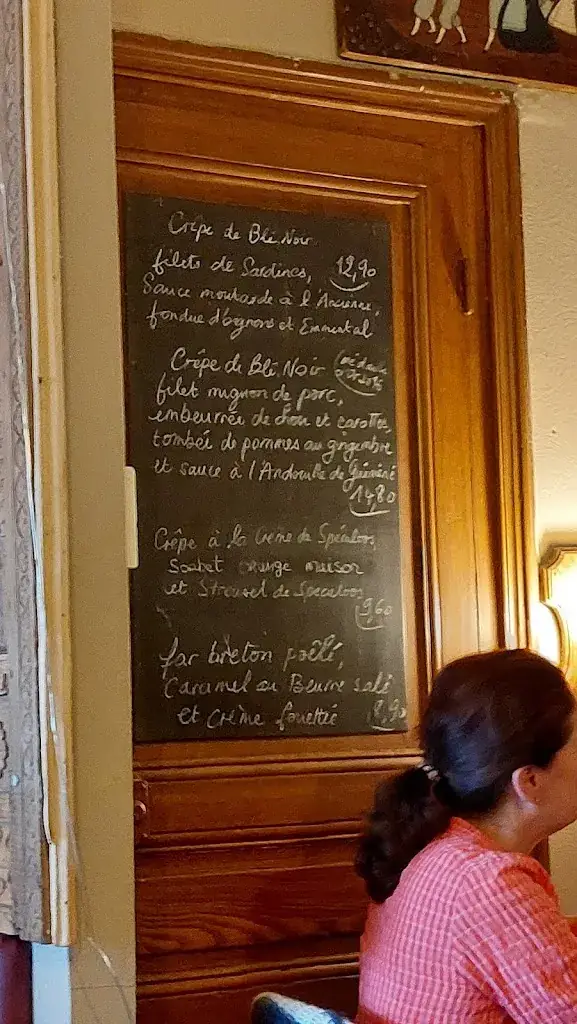 Crêpe de Blé Noir
filets de Sardines, 12,90
Sauce moutarde à l'Ancienne,
fondue d'oignons et Emmental
Crêpe de Blé Noir
filet mignon de porc,
embeurrée de chou et carottes,
tombée de pommes au gingembre
et sauce à l'Andouille de Guéméné
14,80
Crêpe à la Crème de Spéculoos,
Sorbet orange maison
et Streusel de Speculoos
9,60
far breton poêlé,
Caramel au Beurre salé
et Crème fouettée 8,90